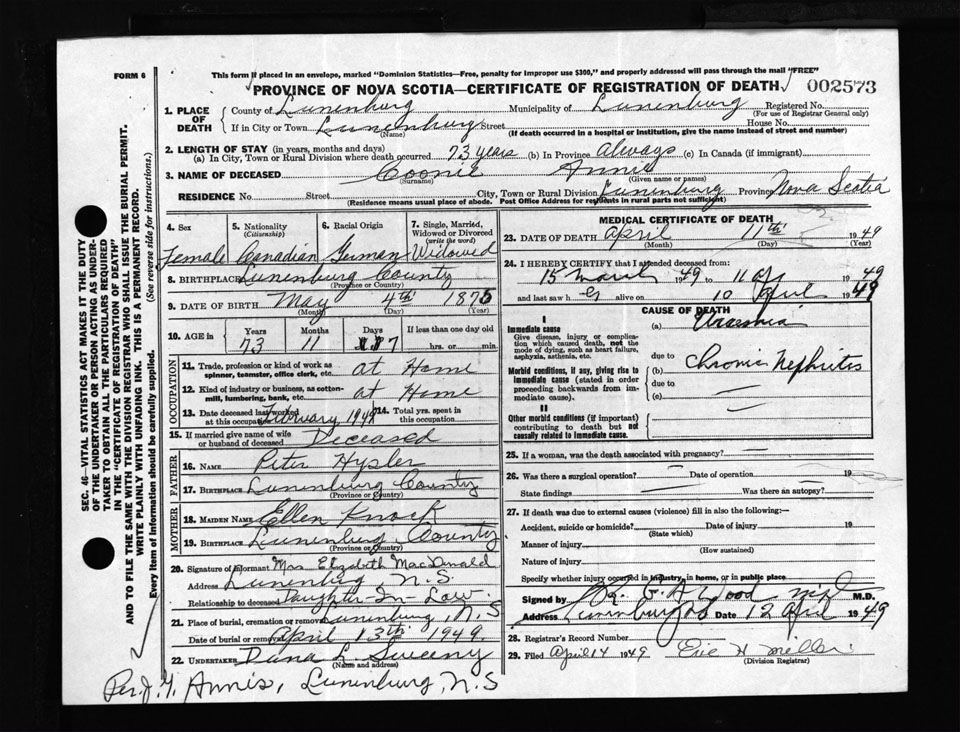 FORM 6
This form if placed in an envelope, marked "Dominion Statistics—Free, penalty for improper use $300," and properly addressed will pass through the mail "FREE"
PROVINCE OF NOVA SCOTIA—CERTIFICATE OF REGISTRATION OF DEATH 002573
1. PLACE OF DEATH
County of Lunenburg Municipality of Lunenburg Registered No.
(For use of Registrar General only)
If in City or Town Lunenburg Street House No.
(Name) (If death occurred in a hospital or institution, give the name instead of street and number)
2. LENGTH OF STAY (in years, months and days)
(a) In City, Town or Rural Division where death occurred 73 years (b) In Province Always (c) In Canada (if immigrant)
3. NAME OF DECEASED Coonie Annie
(Surname) (Given name or names)
RESIDENCE No. Street City, Town or Rural Division Lunenburg Province Nova Scotia
(Residence means usual place of abode. Post Office Address for residents in rural parts not sufficient)
4. Sex
Female
5. Nationality
(Citizenship)
Canadian
6. Racial Origin
German
7. Single, Married, Widowed or Divorced
(write the word)
Widowed
8. BIRTHPLACE Lunenburg County
(Province or Country)
9. DATE OF BIRTH May 4th 1875
(Month) (Day) (Year)
10. AGE in
Years Months Days If less than one day old
73 11 7 hrs. or min.
OCCUPATION
11. Trade, profession or kind of work as spinner, teamster, office clerk, etc. at Home
12. Kind of industry or business, as cotton-mill, lumbering, bank, etc. at Home
13. Date deceased last worked at this occupation February 1949
14. Total yrs. spent in this occupation
15. If married give name of wife or husband of deceased Deceased
FATHER
16. NAME Peter Hysler
17. BIRTHPLACE Lunenburg County
(Province or Country)
MOTHER
18. MAIDEN NAME Ellen Knock
19. BIRTHPLACE Lunenburg County
(Province or Country)
20. Signature of informant Mrs. Elizabeth MacDonald
Address Lunenburg, N.S.
Relationship to deceased Daughter-In-Law
21. Place of burial, cremation or removal Lunenburg, N.S
Date of burial or removal April 13th 1949.
22. UNDERTAKER Dana L. Sweeny
(Name and address)
Per. J. Y. Annis, Lunenburg, N.S
MEDICAL CERTIFICATE OF DEATH
23. DATE OF DEATH April 11th 1949
(Month) (Day) (Year)
24. I HEREBY CERTIFY that I attended deceased from:
15 March 1949 to 11 Ap 1949
and last saw her alive on 10 April 1949
CAUSE OF DEATH
I
Immediate cause
Give disease, injury or complication which caused death, not the mode of dying, such as heart failure, asphyxia, asthenia, etc.
(a) Uraemia
due to
Morbid conditions, if any, giving rise to immediate cause (stated in order proceeding backwards from immediate cause).
(b) Chronic Nephritis
due to
(c)
II
Other morbid conditions (if important) contributing to death but not causally related to immediate cause.
25. If a woman, was the death associated with pregnancy?
26. Was there a surgical operation? Date of operation 19
State findings Was there an autopsy?
27. If death was due to external causes (violence) fill in also the following:—
Accident, suicide or homicide? Date of injury 19
(State which)
Manner of injury
(How sustained)
Nature of injury
Specify whether injury occurred in industry, in home, or in public place
Signed by G A Wood M.D.
Address Lunenburg NS Date 12 April 1949
28. Registrar's Record Number
29. Filed April 14 1949 H Miller
(Division Registrar)
SEC. 46—VITAL STATISTICS ACT MAKES IT THE DUTY
OF THE UNDERTAKER OR PERSON ACTING AS UNDER-
TAKER TO OBTAIN ALL THE PARTICULARS REQUIRED
IN THE "CERTIFICATE OF REGISTRATION OF DEATH"
AND TO FILE THE SAME WITH THE DIVISION REGISTRAR WHO SHALL ISSUE THE BURIAL PERMIT.
WRITE PLAINLY WITH UNFADING INK. THIS IS A PERMANENT RECORD.
Every item of information should be carefully supplied. (See reverse side for instructions.)